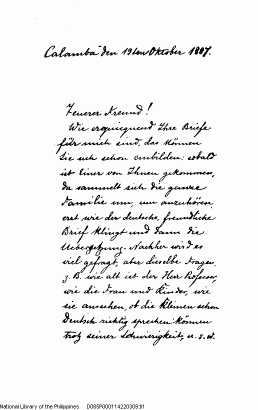 Calamba den 19ten Oktober 1887.
Teuerer Freund!
Wie erquickend Ihre Briefe
für mich sind, das können
Sie sich schon einbilden: sobald
ist Einer von Ihnen gekommen,
da sammelt sich die ganze
Familie um, um anzuhören,
erst wie der deutsche, freundliche
Brief klingt und dann die
Uebersetzung. Nachher wird es
viel gefragt, aber dieselbe Fragen,
z. B. wie alt ist der Herr Professor,
wie die Frau und Kinder, wie
sie aussehen, ob die Kleinen schon
Deutsch richtig sprechen können
trotz seiner Schwierigkeit, u. s. w.
National Library of the Philippines D08SP00011422030931